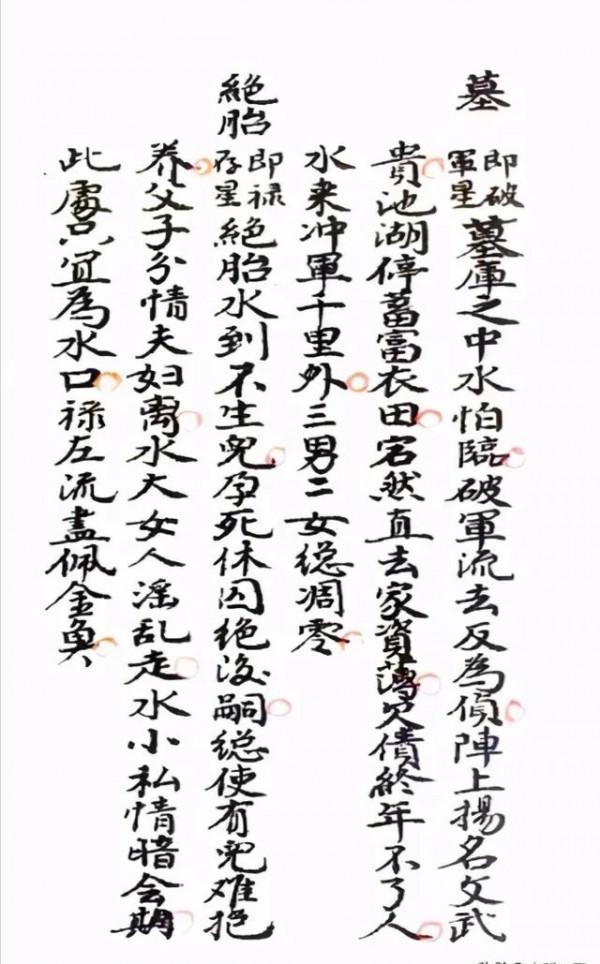 墓 即破軍星 墓庫之中水怕臨破軍流去反為偵陣上揚名文武
貴池湖停蓄富衣田宕然直去家資薄欠債終年不了人
水来冲軍千里外三男二女総凋零
絕胎 即禄存星 絕胎水到不生兒孕死休囚絶後嗣総使有兒难抱
养父子分情夫妇离水大女人滛乱走水小私情暗会期
此處只宜為水口禄左流盡佩金魚